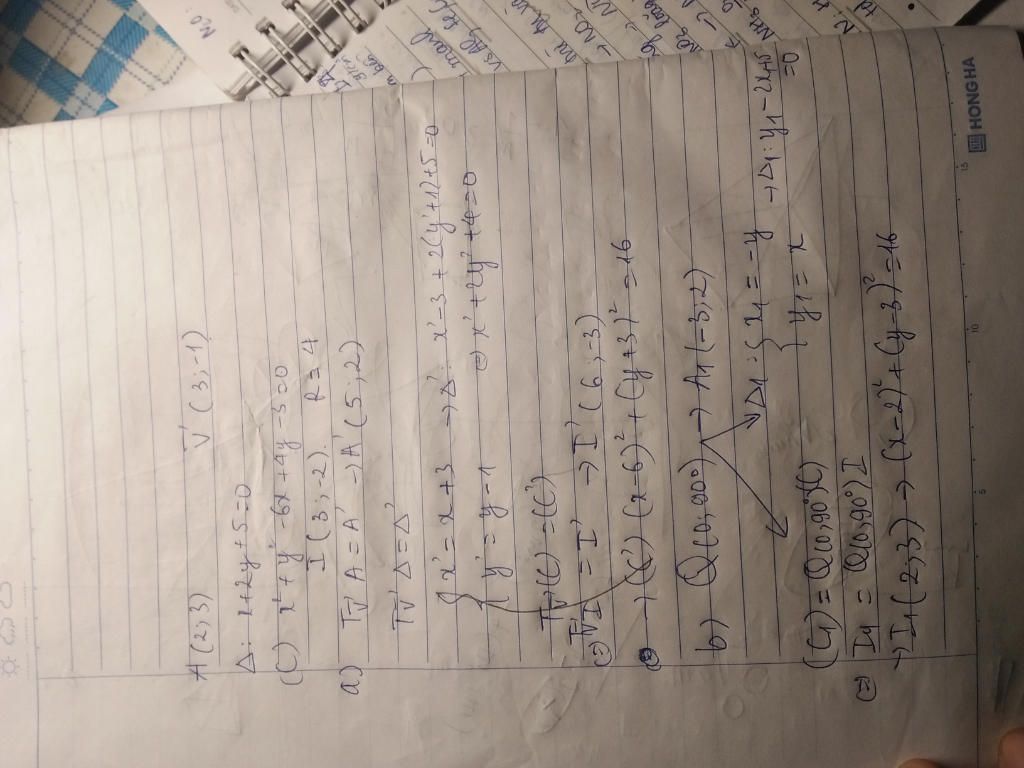 A(2;3) V(3;-1)
Δ: x+2y+5=0
(C) x²+y²-6x+4y-3=0
I(3;-2) R=4
a) Tv A=A' → A'(5;2)
Tv Δ=Δ'
{ x'=x+3 → Δ': x'-3+2(y'+1)+5=0
{ y'=y-1 ⇔ x'+2y'+4=0
Tv (C)=(C')
⇔ Tv I = I' → I'(6;-3)
→ (C') (x-6)²+(y+3)²=16
b) Q(0,90°) → A1(-3;2)
Δ1: { x1=-y → Δ1: y1-2x1+5=0
{ y1=x
(C1) = Q(0,90°)(C)
⇔ I1 = Q(0,90°) I
→ I1(2;3) → (x-2)²+(y-3)²=16
HONG HA
5
10
15